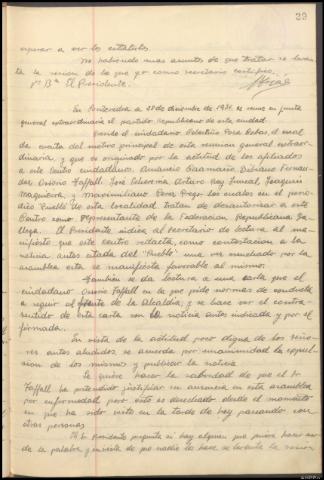 29
esperar a ver los estatutos.
No habiendo mas asuntos de que tratar se levanta
la sesion de lo que yo como secretario certifico.
Vº Bº El Presidente.
En Pontevedra a 27 de diciembre de 1931, se reune en junta
general extraordinaria el partido Republicano de esta ciudad.
Preside el ciudadano Celestino Poza Cobas, el cual
da cuenta del motivo principal de esta reunion general extraordi-
naria, y que es originado por la actitud de los afiliados
a este Centro ciudadanos: Amancio Caamaño, Bibiano Fernan-
dez Osorio Tafall, José Echeverria, Arturo Rey
Maquieira y Maximiliano Perez Prego los cuales en el perió-
dico "Pueblo" de esta localidad tratan de desautorizar a este
Centro como Representante de la Federación Republicana Ga-
llega. El Presidente indica al Secretario de lectura al ma-
nifiesto que este centro redacta, como contestacion a la
noticia antes citada del "Pueblo" una vez escuchado por la
asamblea esta se manifiesta favorable al mismo.
Tambien se da lectura a una carta que el
ciudadano Osorio Tafall en la que pide normas de conducta
a seguir al frente de la Alcaldía, y se hace ver el contra-
sentido de esta carta con la noticia antes indicada y por el
firmada.
En vista de la actitud poco digna de los seño-
res antes aludidos, se acuerda por unanimidad la expul-
sion de los mismos y publicar la noticia.
Se quiere hacer la salvedad de que el Sr.
Tafall ha pretendido justificar su ausencia en esta asamblea
por enfermedad pero esto es desechado desde el momento
en que ha sido visto en la tarde de hoy paseando con
otras personas.
El Sr. Presidente pregunta si hay alguien que quiera hacer uso
de la palabra y en vista de que nadie lo hace se levanta la sesion